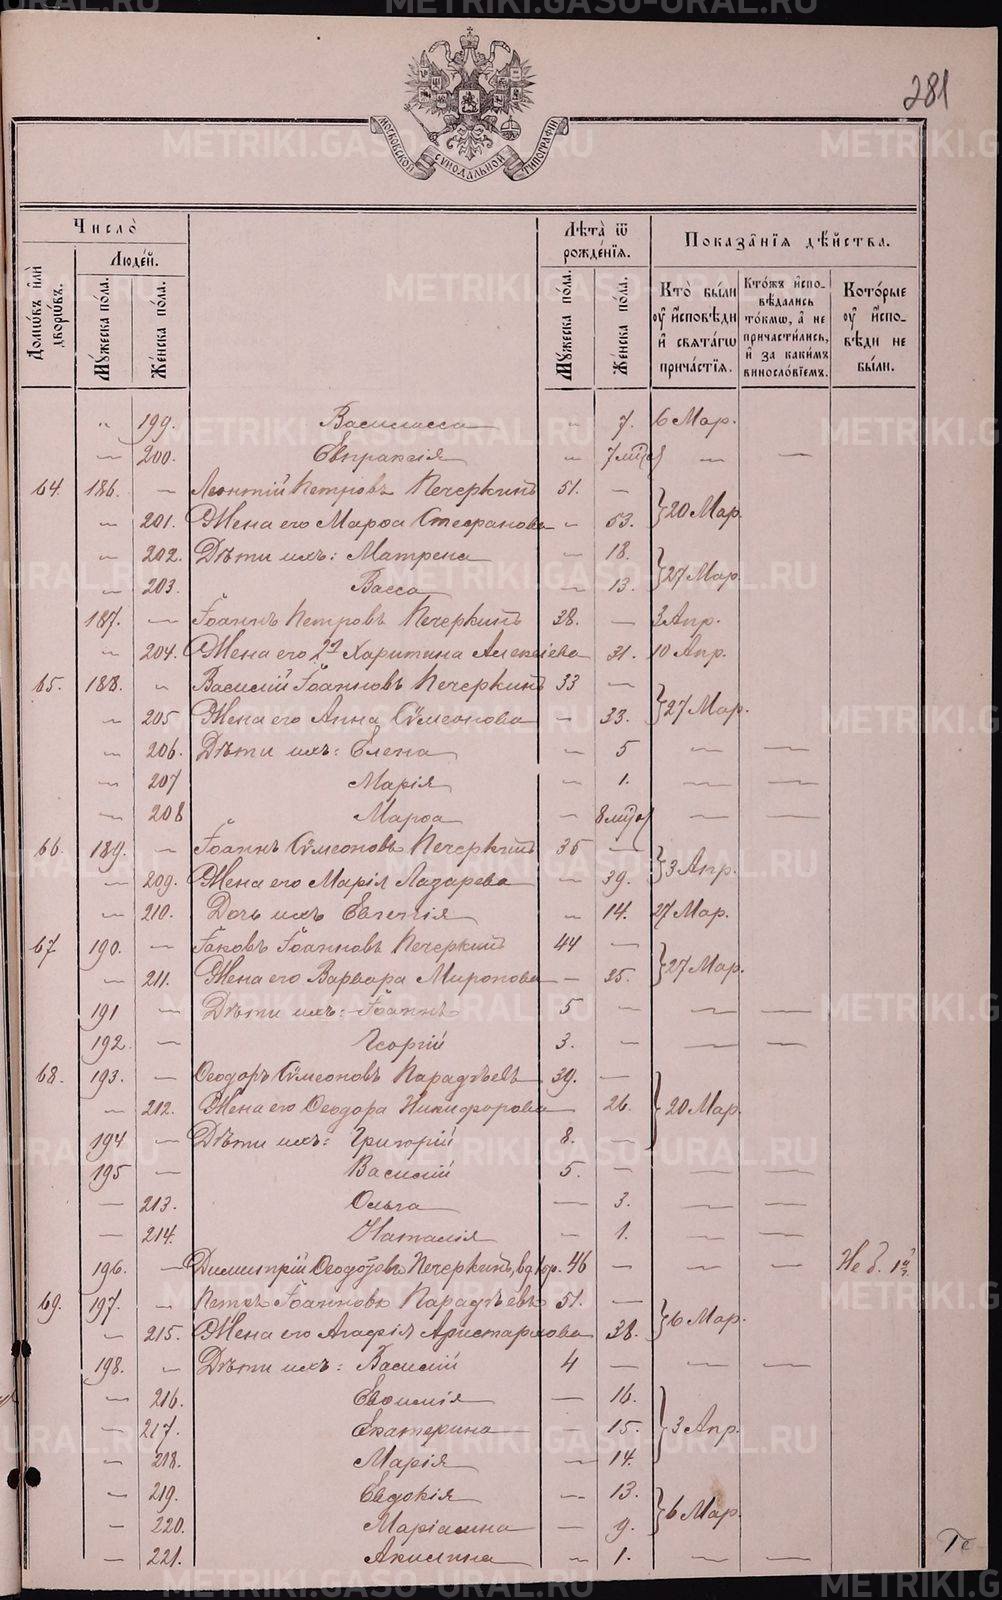 METRIKI.GASO-URAL.RU
281
МОСКОВСКОЙ СѴНОДАЛЬНОЙ ТИПОГРАФІИ
Число̀
Людей.
Домѡвъ илѝ дворѡвъ.
Мужеска по́ла.
Же́нска по́ла.
Лѣта̀ ѿ рожде́нїѧ.
Мужеска по́ла.
Же́нска по́ла.
Показанїѧ дѣйства.
Кто̀ были оу҆ исповѣди и҆ свѧтагѡ причастїѧ.
Кто́жъ исповѣдались то́кмѡ, а҆ не причастились, и҆ за какимъ винословїемъ.
Кото́рые оу҆ исповѣди не были.
" 199. Василисса " 7. 6 Мар.
— 200. Евпраксія " 7 мцов — —
64. 186. — Леонтій Петровъ Печеркинъ 51. — } 20 Мар.
" 201. Жена его Марѳа Стефанова " 53.
" 202. Дѣти ихъ: Матрена — 18. } 27 Мар.
" 203. Васса — 13.
187. — Іоаннъ Петровъ Печеркинъ 38. — 3 Апр.
" 204. Жена его 2я Харитина Алексіева — 31. 10 Апр.
65. 188. " Василій Іоанновъ Печеркинъ 33 — } 27 Мар.
" 205 Жена его Анна Сѵмеонова — 33.
" 206. Дѣти ихъ: Елена — 5 — —
— 207 Марія — 1. — —
— 208 Марѳа — 8 мцов — —
66. 189. — Іоаннъ Сѵмеоновъ Печеркинъ 35 — } 3 Апр.
— 209. Жена его Марія Лазарева — 39.
— 210. Дочь ихъ Евгенія " 14. 27 Мар.
67 190. — Іаковъ Іоанновъ Печеркинъ 44 — } 27 Мар.
— 211. Жена его Варвара Миронова — 35.
191 — Дѣти ихъ: Іоаннъ 5 — — —
192. — Георгій 3. — — —
68. 193. — Ѳеодоръ Сѵмеоновъ Карадѣевъ 39. — } 20 Мар.
" 212. Жена его Ѳеодора Никифорова — 26.
194 — Дѣти ихъ: Григорій 8. —
195 — Василій 5. — — —
— 213. Ольга — 3. — —
— 214. Наталія — 1. — —
196. — Димитрій Ѳеодотовъ Печеркинъ, вдов. 46 — — — Не б. 1й г.
69. 197. " Петръ Іоанновъ Карадѣевъ 51. — } 6 Мар.
" 215. Жена его Агафія Аристархова 38.
198. " Дѣти ихъ: Василій 4 — — —
— 216. Евѳимія — 16. } 3 Апр.
— 217. Екатерина — 15.
— 218. Марія — 14.
— 219. Евдокія — 13. } 6 Мар.
— 220. Маріамна — 9.
— 221. Акилина " 1. — —
Ге